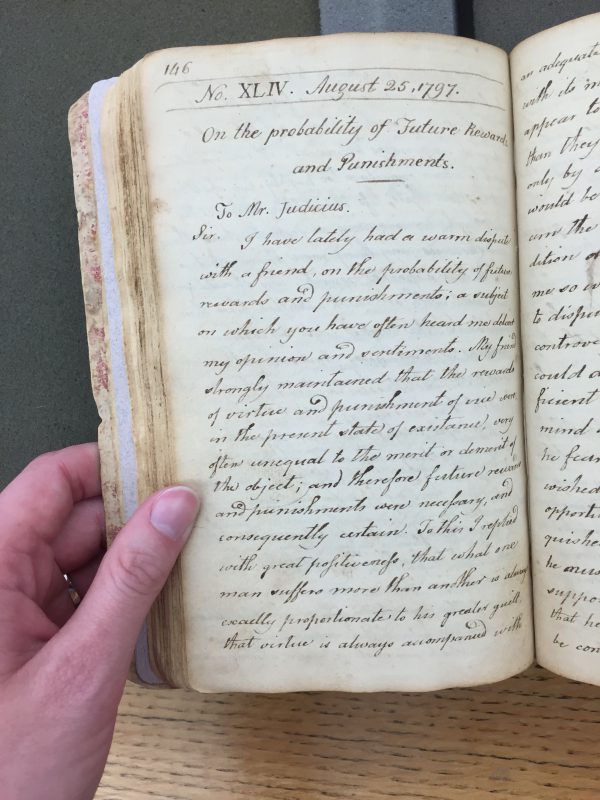 146
No. XLIV. August 25, 1797.
On the probability of Future Rewards
and Punishments.
To Mr. Judicius.
Sir. I have lately had a warm dispute
with a friend, on the probability of future
rewards and punishments; a subject
on which you have often heard me
my opinion and sentiments. My friend
strongly maintained that the rewards
of virtue and punishment of vice were
in the present state of existance, very
often unequal to the merit or demerit of
the object; and therefore future rewards
and punishments were necessary, and
consequently certain. To this I replied
with great positiveness, that what one
man suffers more than another is always
exactly proportionate to his greater guilt
that virtue is always accompanied with
an adequate
with its
appear to
than they
only by
would be
the
dition of
me so
to dispu
controve
could
ficient
mind
he fear
wished
opporti
quished
he
suppo
that he
be con